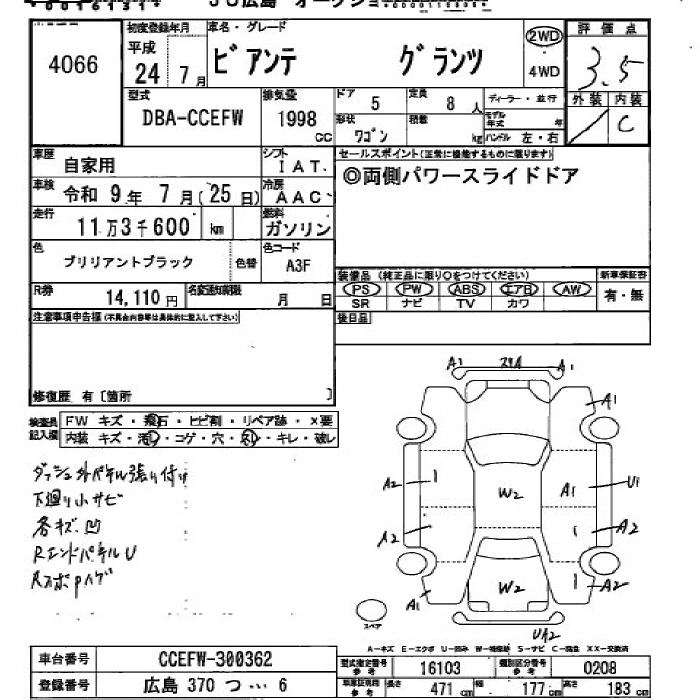 JU広島 オークション
4066
初度登録年月 車名・グレード
平成 24 7月 ビアンテ グランツ
2WD
4WD
評価点
3.5
外装 内装
C
型式 排気量 ドア 定員 ディーラー・並行
DBA-CCEFW 1998 cc 5 8人
形状 積載 モデル年式 年
ワゴン kg ハンドル 左・右
車歴 自家用 シフト IAT.
セールスポイント(正常に機能するものに限ります)
車検 令和 9年 7月(25日) 冷房 AAC
◎両側パワースライドドア
走行 11万3千600 km 燃料 ガソリン
色 ブリリアントブラック 色替 色コード A3F
装備品(純正品に限り○をつけてください) 新車保証書
PS PW ABS エアB AW 有・無
SR ナビ TV カワ
R券 14,110円 名変通知期限 月 日
注意事項申告欄(不具合内容等は具体的に記入して下さい)
後日品
修復歴 有〔箇所 〕
検査員記入欄
FW キズ・飛石・ヒビ割・リペア跡・×要
内装 キズ・汚レ・コゲ・穴・スレ・キレ・破レ
ダッシュ外パネル張り付け
下廻り小サビ
各キズ凹
RエンドパネルU
RスポPハゲ
A1 A1
A1
A2 A1 U1
W2
A2 A2
W2
A1 A2
UA2
スペア
A-キズ E-エクボ U-凹み W-補修跡 S-サビ C-腐蝕 XX-交換済
車台番号 CCEFW-300362
型式指定番号 参考 16103 類別区分番号 参考 0208
登録番号 広島 370 つ … 6
車検証明度 参考 長さ 471cm 幅 177cm 高さ 183cm